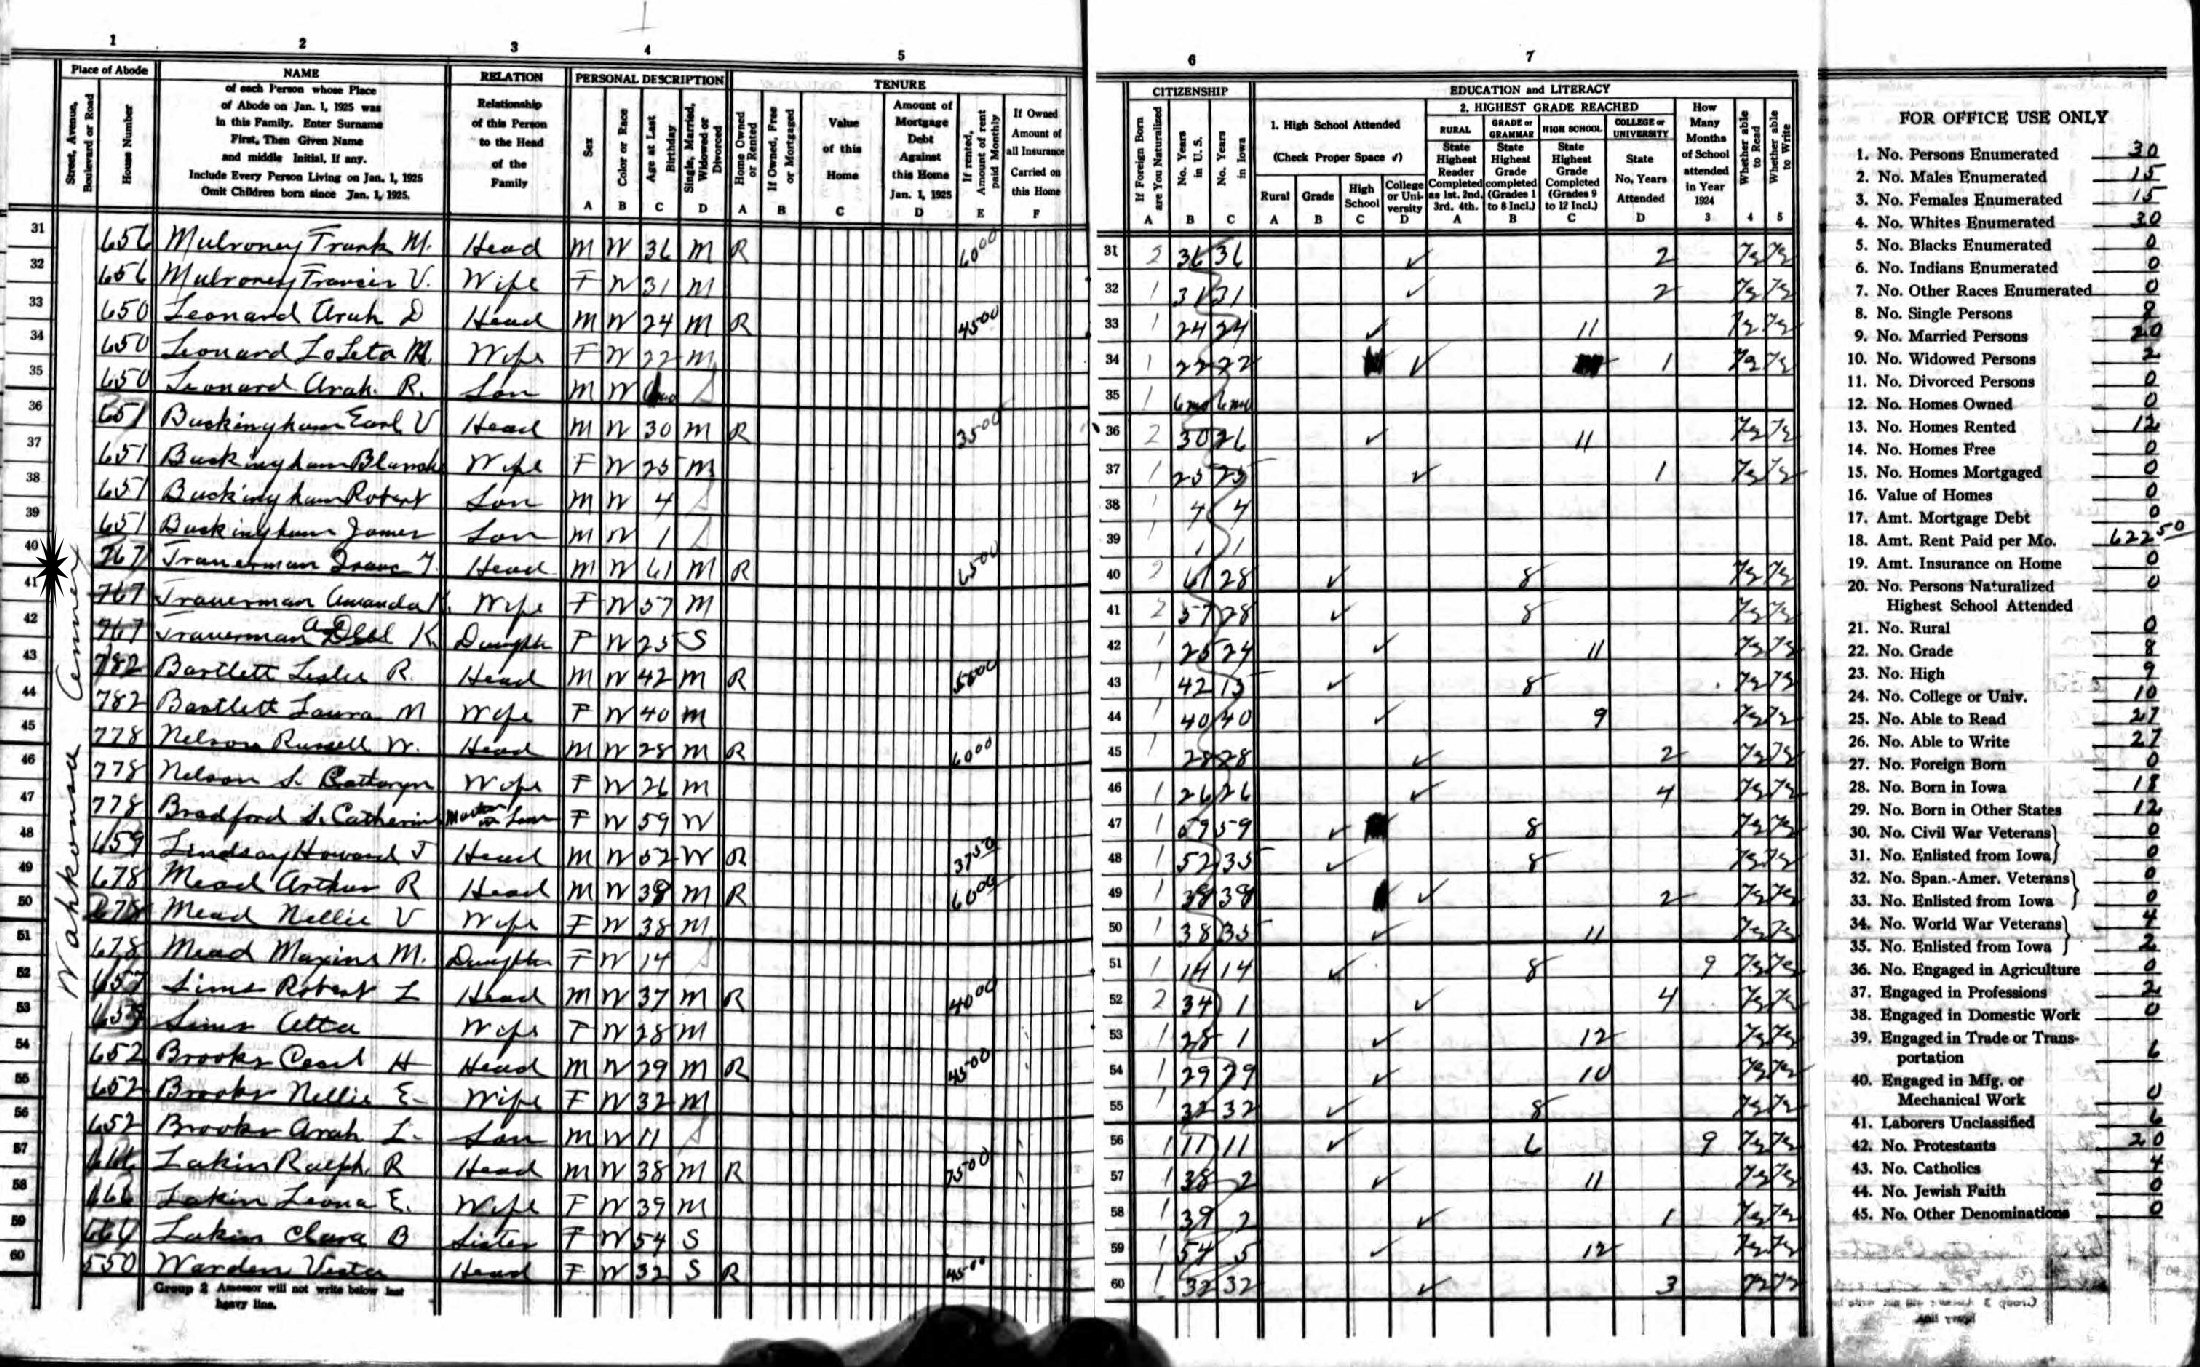 1 2 3 4 5
Place of Abode NAME RELATION PERSONAL DESCRIPTION TENURE
Street, Avenue, Boulevard or Road
House Number
of each Person whose Place
of Abode on Jan. 1, 1925 was
in this Family. Enter Surname
First, Then Given Name
and middle Initial, if any.
Include Every Person Living on Jan. 1, 1925
Omit Children born since Jan. 1, 1925.
Relationship
of this Person
to the Head
of the
Family
Sex
Color or Race
Age at Last Birthday
Single, Married, Widowed or Divorced
Home Owned or Rented
If Owned, Free or Mortgaged
Value
of this
Home
Amount of
Mortgage
Debt
Against
this Home
Jan. 1, 1925
If rented, Amount of rent paid Monthly
If Owned
Amount of
all Insurance
Carried on
this Home
A B C D A B C D E F
Wahkonsa Annex
31 656 Mulroney Frank M. Head M W 36 M R 60 00
32 656 Mulroney Francis V. Wife F W 31 M
33 650 Leonard Arah D Head M W 24 M R 45 00
34 650 Leonard LoLeta M. Wife F W 22 M
35 650 Leonard Arah. R. Son M W S
36 651 Buckingham Earl V Head M W 30 M R 35 00
37 651 Buckingham Blanch Wife F W 25 M
38 651 Buckingham Robert Son M W 4 S
39 651 Buckingham James Son M W 1 S
40 767 Trauerman Isaac Y. Head M W 61 M R 65 00
41 767 Trauerman Amanda K. Wife F W 57 M
42 767 Trauerman K Daughter F W 25 S
43 782 Bartlett Leslie R. Head M W 42 M R 55 00
44 782 Bartlett Laura M Wife F W 40 M
45 778 Nelson Russell W. Head M W 28 M R 60 00
46 778 Nelson S. Cathryn Wife F W 26 M
47 778 Bradford S. Catherine Mother in Law F W 59 W
48 659 Lindsay Howard J Head M W 52 W R 37 50
49 678 Mead Arthur R Head M W 39 M R 60 00
50 678 Mead Nellie V Wife F W 38 M
51 678 Mead Maxine M. Daughter F W 14 S
52 657 Sims Robert L Head M W 37 M R 40 00
53 657 Sims Alta Wife F W 28 M
54 652 Brooks Cecil H Head M W 29 M R 45 00
55 652 Brooks Nellie E. Wife F W 32 M
56 652 Brooks Arah L. Son M W 11 S
57 Lakin Ralph R Head M W 38 M R 75 00
58 666 Lakin Leona E. Wife F W 39 M
59 Lakin Clara B Sister F W 54 S
60 550 Warden Vesta Head F W 32 S R 45 00
Group 2 Assessor will not write below last
heavy line.
6 7
CITIZENSHIP EDUCATION and LITERACY
If Foreign Born are You Naturalized
No. Years in U.S.
No. Years in Iowa
1. High School Attended
(Check Proper Space ✓)
Rural Grade High School College or University
2. HIGHEST GRADE REACHED
RURAL
State Highest Reader Completed as 1st. 2nd. 3rd. 4th.
GRADE or GRAMMAR
State Highest Grade completed (Grades 1 to 8 Incl.)
HIGH SCHOOL
State Highest Grade Completed (Grades 9 to 12 Incl.)
COLLEGE or UNIVERSITY
State No, Years Attended
How Many Months of School attended in Year 1924
Whether able to Read
Whether able to Write
A B C A B C D A B C D 3 4 5
31 2 36 36 ✓ 2 Yes Yes
32 1 31 31 ✓ 2 Yes Yes
33 1 24 24 ✓ 11 Yes Yes
34 1 22 22 ✓ 1 Yes Yes
35 1 6mo 6mo
36 2 30 26 ✓ 11 Yes Yes
37 1 25 25 ✓ 1 Yes Yes
38 1 4 4
39 1 1 1
40 2 61 28 ✓ 8 Yes Yes
41 2 57 28 ✓ 8 Yes Yes
42 1 25 24 ✓ 11 Yes Yes
43 1 42 15 ✓ 8 Yes Yes
44 1 40 40 ✓ 9 Yes Yes
45 1 28 28 ✓ 2 Yes Yes
46 1 26 26 ✓ 4 Yes Yes
47 1 59 59 ✓ 8 Yes Yes
48 1 52 35 ✓ 8 Yes Yes
49 1 39 39 ✓ 2 Yes Yes
50 1 38 35 ✓ 11 Yes Yes
51 1 14 14 ✓ 8 9 Yes Yes
52 2 34 1 ✓ 4 Yes Yes
53 1 28 1 ✓ 12 Yes Yes
54 1 29 29 ✓ 10 Yes Yes
55 1 32 32 ✓ 8 Yes Yes
56 1 11 11 ✓ 6 9 Yes Yes
57 1 38 2 ✓ 11 Yes Yes
58 1 39 2 ✓ 1 Yes Yes
59 1 54 5 ✓ 12 Yes Yes
60 1 32 32 ✓ 3 Yes Yes
FOR OFFICE USE ONLY
1. No. Persons Enumerated 30
2. No. Males Enumerated 15
3. No. Females Enumerated 15
4. No. Whites Enumerated 30
5. No. Blacks Enumerated 0
6. No. Indians Enumerated 0
7. No. Other Races Enumerated 0
8. No. Single Persons 8
9. No. Married Persons 20
10. No. Widowed Persons 2
11. No. Divorced Persons 0
12. No. Homes Owned 0
13. No. Homes Rented 12
14. No. Homes Free 0
15. No. Homes Mortgaged 0
16. Value of Homes 0
17. Amt. Mortgage Debt 0
18. Amt. Rent Paid per Mo. 622 50
19. Amt. Insurance on Home 0
20. No. Persons Naturalized 0
Highest School Attended
21. No. Rural 0
22. No. Grade 8
23. No. High 9
24. No. College or Univ. 10
25. No. Able to Read 27
26. No. Able to Write 27
27. No. Foreign Born 0
28. No. Born in Iowa 18
29. No. Born in Other States 12
30. No. Civil War Veterans 0
31. No. Enlisted from Iowa 0
32. No. Span.-Amer. Veterans 0
33. No. Enlisted from Iowa 0
34. No. World War Veterans 4
35. No. Enlisted from Iowa 2
36. No. Engaged in Agriculture 0
37. Engaged in Professions 2
38. Engaged in Domestic Work 0
39. Engaged in Trade or Trans-
portation 6
40. Engaged in Mfg. or
Mechanical Work 0
41. Laborers Unclassified 6
42. No. Protestants 20
43. No. Catholics 4
44. No. Jewish Faith 0
45. No. Other Denominations 0